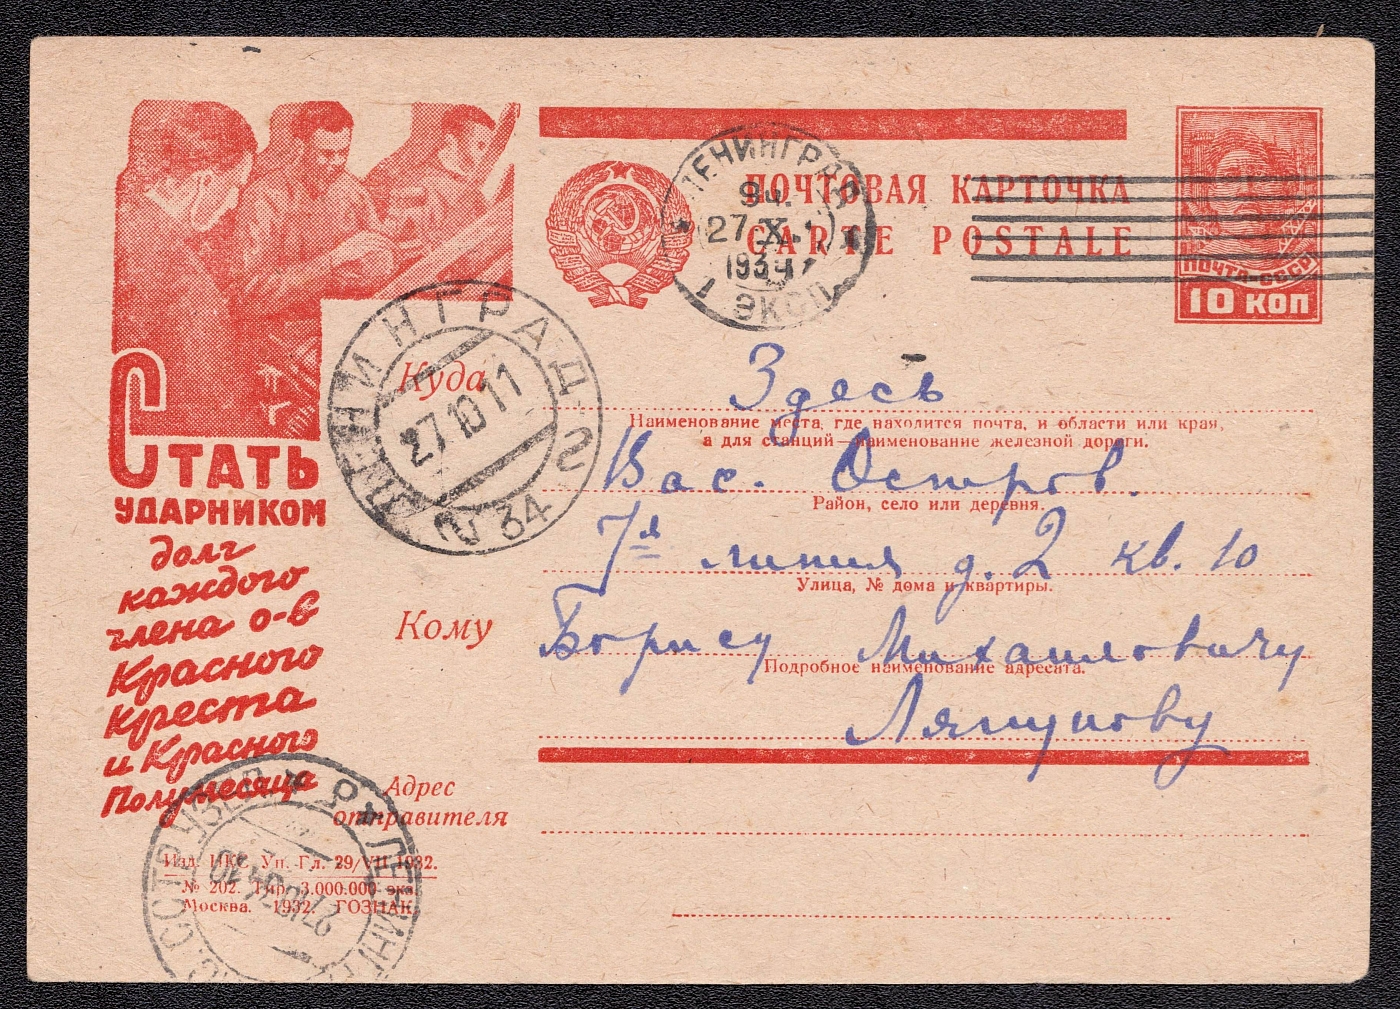 ПОЧТОВАЯ КАРТОЧКА
CARTE POSTALE
ПОЧТА-СССР
10 КОП
ЛЕНИНГРАД
9ч.
27 X
1934
1 ЭКСП.
ЛЕНИНГРАД 2
27 10 11
34
СТАТЬ
УДАРНИКОМ
долг
каждого
члена о-в
Красного
Креста
и Красного
Полумесяца
Куда
Здесь
Наименование места, где находится почта, и области или края,
а для станций—наименование железной дороги.
Вас. Остров.
Район, село или деревня.
7я линия д. 2 кв. 10
Улица, № дома и квартиры.
Кому
Борису Михайловичу
Подробное наименование адресата.
Ляпунову
Адрес
отправителя
Изд. НКС. Уп. Гл. 29/VII 1932.
№ 202. Тир. 3.000.000 экз.
Москва. 1932. ГОЗНАК.